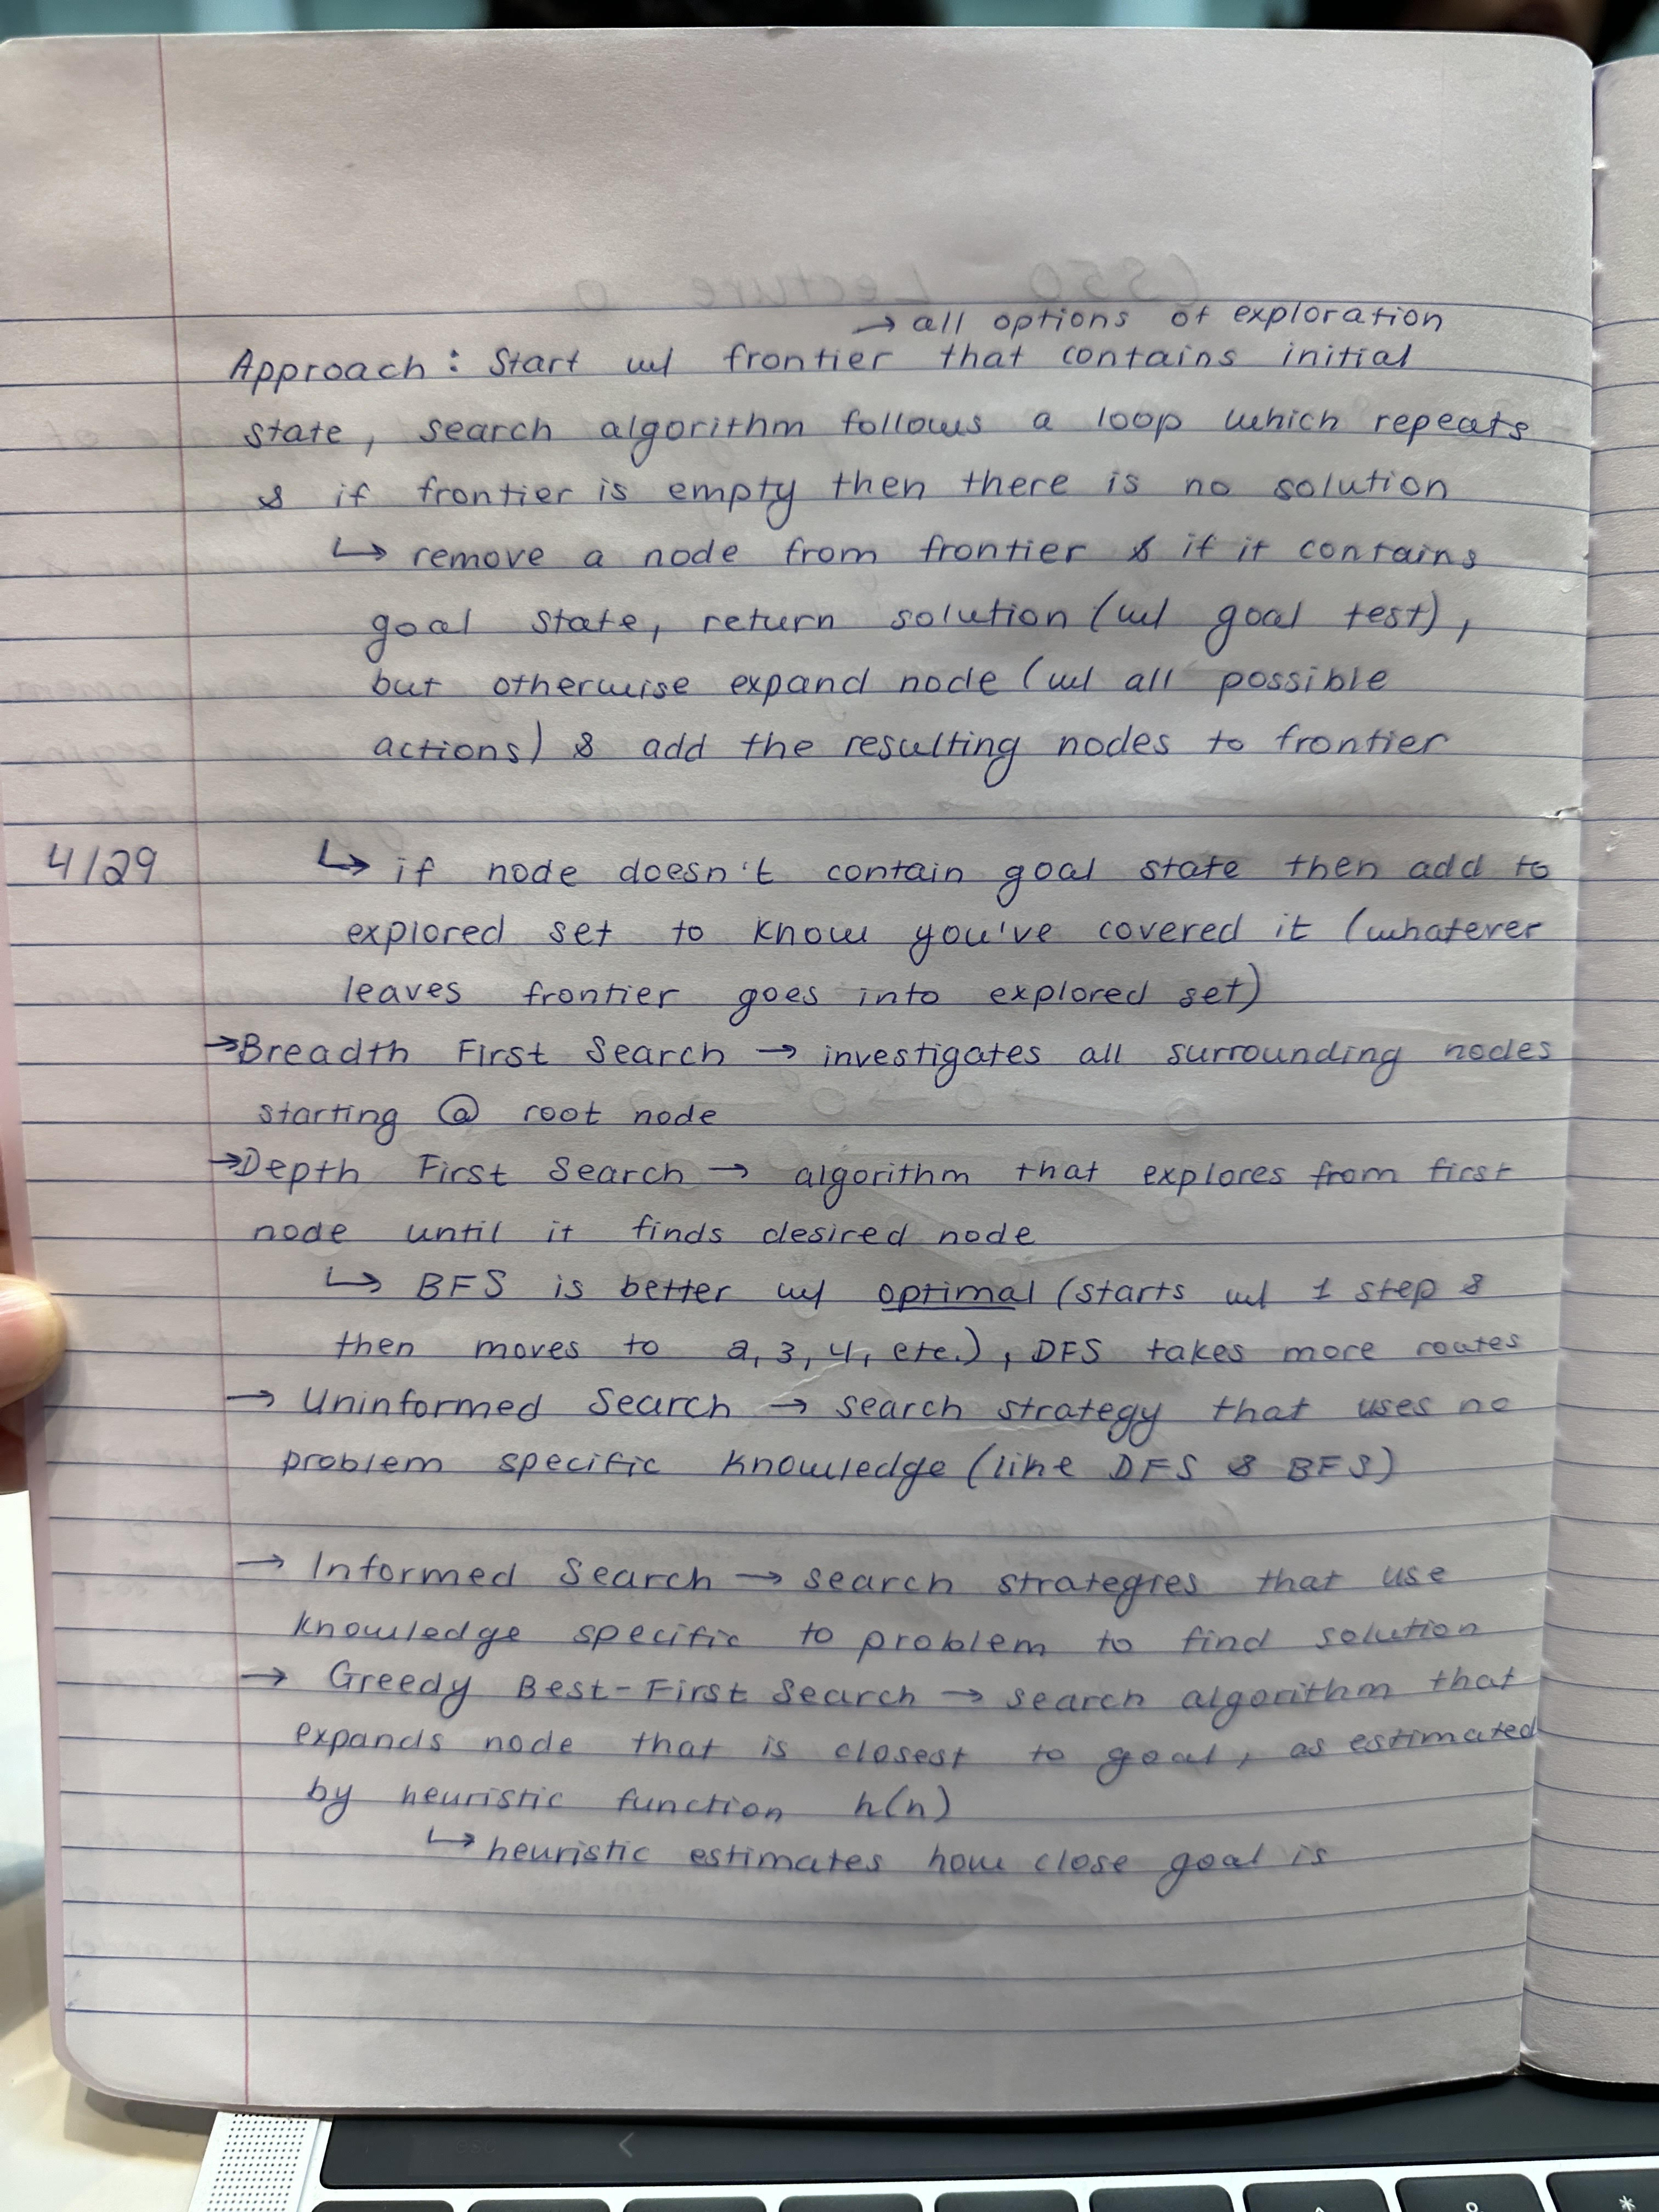 CS50 Lecture 0
→ all options of exploration
Approach: Start w/ frontier that contains initial
state, search algorithm follows a loop which repeats
& if frontier is empty then there is no solution
↳ remove a node from frontier & if it contains
goal state, return solution (w/ goal test),
but otherwise expand node (w/ all possible
actions) & add the resulting nodes to frontier
4/29
↳ if node doesn't contain goal state then add to
explored set to know you've covered it (whatever
leaves frontier goes into explored set)
→Breadth First Search → investigates all surrounding nodes
starting @ root node
→Depth First Search → algorithm that explores from first
node until it finds desired node
↳ BFS is better w/ optimal (starts w/ 1 step &
then moves to 2, 3, 4, etc.), DFS takes more routes
→ Uninformed Search → search strategy that uses no
problem specific knowledge (like DFS & BFS)
→ Informed Search → search strategies that use
knowledge specific to problem to find solution
→ Greedy Best-First Search → search algorithm that
expands node that is closest to goal, as estimated
by heuristic function h(n)
↳ heuristic estimates how close goal is